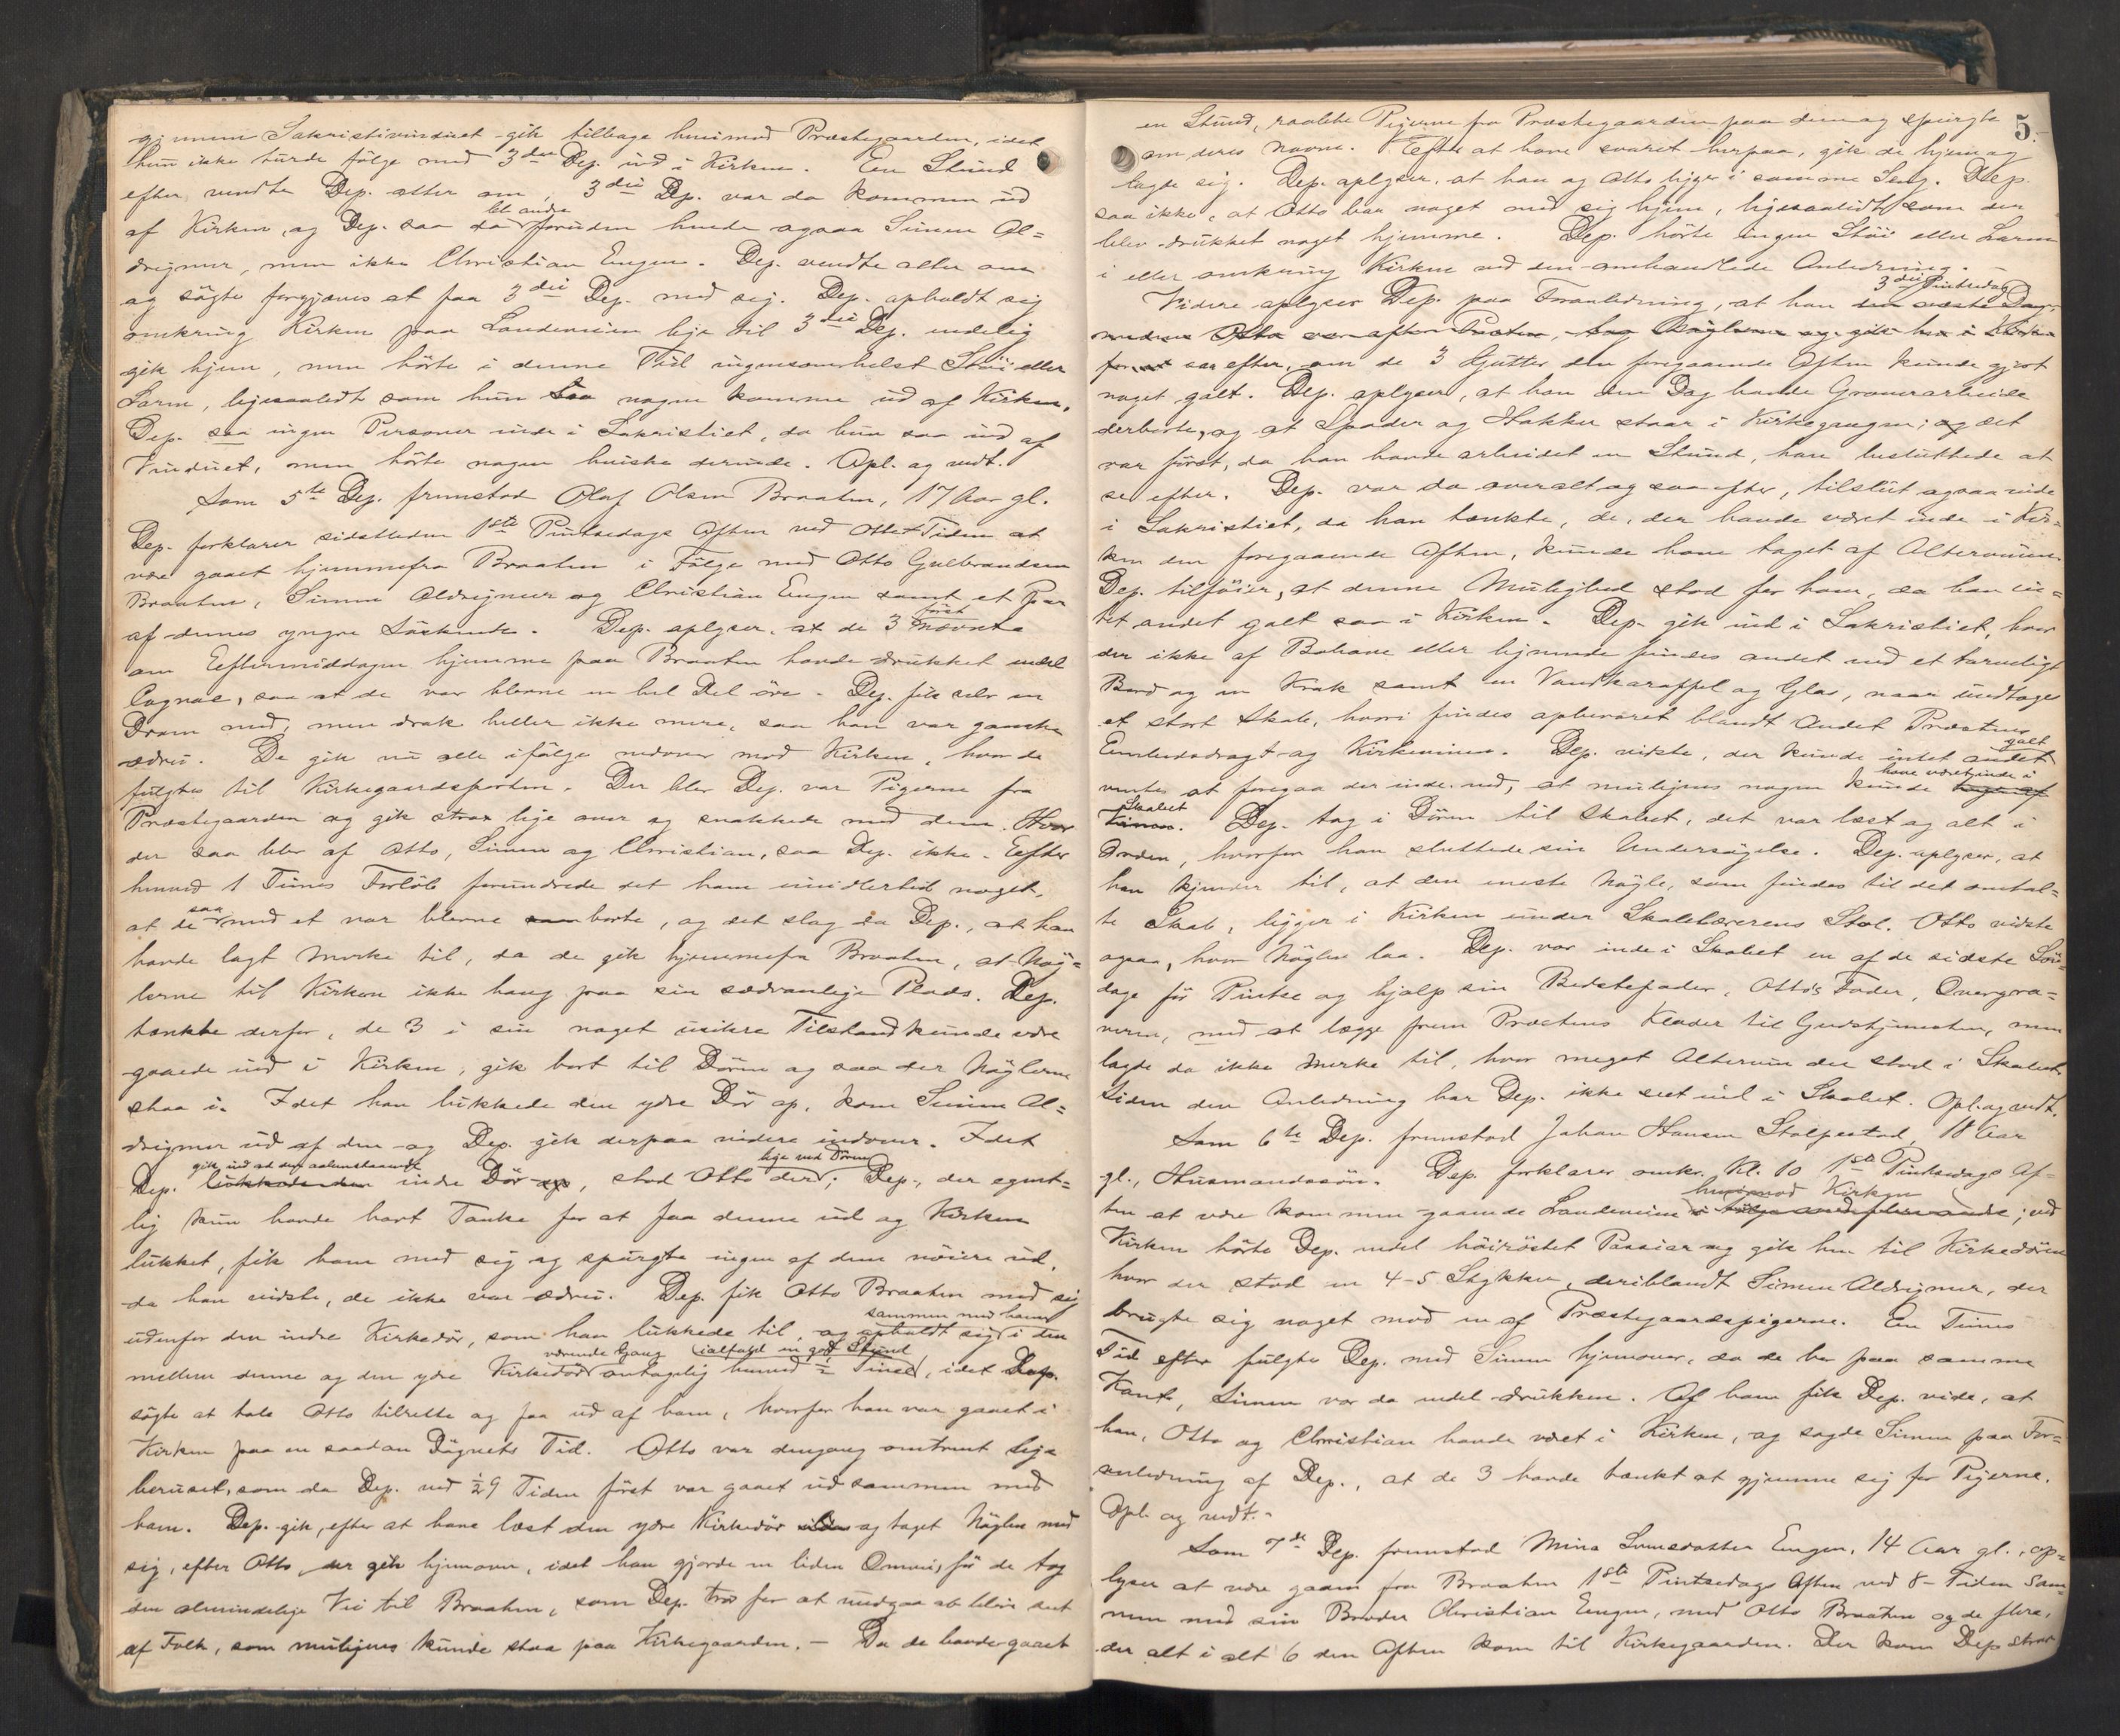 gjennem Sakristivinduet gik tilbage henimod Præstegaarden, idet
hun ikke turde følge med 3die Dep. ind i Kirken. En Stund
efter vendte Dep. atter om, 3die Dep. var da kommen ud
af Kirken, og Dep. saa da bl. andre foruden hende ogsaa Simen Al=
drigmer, men ikke Christian Engen. Dep. vendte atter om
og søgte forgjæves at faa 3die Dep. med sig. Dep. opholdt sig
omkring Kirken paa Landeveien lige til 3die Dep. endelig
gik hjem, men hørte i denne Tid ingensomhelst Støi eller
Larm, ligesaalidt som hun saa nogen komme ud af Kirken.
Dep. saa ingen Personer inde i Sakristiet, da hun saa ind af
Vinduet, men hørte nogen hviske derinde. Opl. og vedt.
Som 5te Dep. fremstod Olaf Olsen Braaten, 17 Aar gl.
Dep. forklarer sidstleden 1ste Pintsedags Aften ved Otte Tiden at
være gaaet hjemmefra Braaten i Følge med Otto Gulbrandsen
Braaten, Simen Aldrigmer og Christian Engen samt et Par
af dennes yngre Søskende. Dep. oplyser, at de 3 først nævnte
om Eftermiddagen hjemme paa Braaten havde drukket endel
Cognac, saa at de var blevne en hel Del øre. Dep. fik selv en
Dram med, men drak heller ikke mere, saa han var ganske
ædru. De gik nu alle ifølge nedover mod Kirken, hvor de
fulgtes til Kirkegaardsporten. Der blev Dep. var Pigerne fra
Præstegaarden og gik strax lige over og snakkede med dem. Hvor
der saa blev af Otto, Simen og Christian, saa Dep. ikke. Efter
henved 1 Times Forløb forundrede det ham imidlertid noget,
at de saa med et var blevne borte, og det slog da Dep., at han
havde lagt Mærke til, da de gik hjemmefra Braaten, at Nøg=
lerne til Kirken ikke hang paa sin sædvanlige Plads. Dep.
tænkte derfor, de 3 i sin noget usikre Tilstand kunde være
gaaede ind i Kirken, gik bort til Døren og saa der Nøglerne
staa i. Idet han lukkede den ydre Dør op, kom Simen Al=
drigmer ud af den og Dep. gik derpaa videre indover. Idet
Dep. gik ind ad den aabenstaaende indre Dør, stod Otto der lige ved Døren; Dep., der egent=
lig kun havde havt Tanke for at faa denne ud og Kirken
lukket, fik ham med sig og spurgte ingen af dem nøiere ud,
da han vidste, de ikke var ædru. Dep. fik Otto Braaten med sig
udenfor den indre Kirkedør, som han lukkede til, og opholdt sig sammen med ham i den
mellem denne og den ydre Kirkedør værende Gang antagelig henved ½ Time (ialfald en god Stund), idet Dep.
søgte at tale Otto tilrette og faa ud af ham, hvorfor han var gaaet i
Kirken paa en saadan Døgnets Tid. Otto var dengang omtrent lige
beruset, som da Dep. ved ½9 Tiden først var gaaet ud sammen med
ham. Dep. gik, efter at have læst den ydre Kirkedør og taget Nøglen med
sig, efter Otto, der gik hjemover, idet han gjorde en liden Omvei, før de tog
den almindelige Vei til Braaten, som Dep. tror for at undgaa at blive seet
af Folk, som muligens kunde staa paa Kirkegaarden. – Da de havde gaaet
5.
en Stund, raabte Pigerne fra Præstegaarden paa dem og spurgte
om deres Navne. Efter at have svaret herpaa, gik de hjem og
lagde sig. Dep. oplyser, at han og Otto ligger i samme Seng. Dep.
saa ikke, at Otto bar noget med sig hjem, ligesaalidt som der
blev drukket noget hjemme. Dep. hørte ingen Støi eller Larm
i eller omkring Kirken ved den omhandlede Anledning. –
Videre oplyser Dep. paa Foranledning, at han den næste Dag, 3die Pintsedag
medens Otto var efter Posten, tog Nøglerne og gik hen i Kirken
for at se efter, om de 3 Gutter den foregaaende Aften kunde gjort
noget galt. Dep. oplyser, at han den Dag havde Graverarbeide
derborte, og at Spader og Hakker staar i Kirkegangen; og det
var først, da han havde arbeidet en Stund, han besluttede at
se efter. Dep. var da overalt og saa efter, tilslut ogsaa inde
i Sakristiet, da han tænkte, de, der havde været inde i Kir=
ken den foregaaende Aften, kunde have taget af Altervinen.
Dep. tilføier, at denne Mulighed stod for ham, da han in=
tet andet galt saa i Kirken. Dep. gik ind i Sakristiet, hvor
der ikke af Bohave eller lignende findes andet end et tarveligt
Bord og en Krak samt en Vandkaraffel og Glas, naar undtages
et stort Skab, hvori findes opbevaret blandt Andet Præstens
Embedsdragt og Kirkevinen. Dep. vidste, der kunde intet andet galt
ventes at foregaa der inde end, at muligens nogen kunde have været inde i
Skabet. Dep. tog i Døren til Skabet, det var læst og alt i
Orden, hvorfor han sluttede sin Undersøgelse. Dep. oplyser, at
han kjender til, at den eneste Nøgle, som findes til det omtal=
te Skab, ligger i Kirken under Skolelærerens Stol. Otto vidste
ogsaa, hvor Nøglen laa. Dep. var inde i Skabet en af de sidste Søn=
dage før Pintse og hjalp sin Bedstefader, Otto's Fader, Overgra=
veren, med at lægge frem Præstens Klæder til Gudstjenesten, men
lagde da ikke Mærke til, hvor meget Altervin der stod i Skabet.
Siden den Anledning har Dep. ikke seet ind i Skabet. Opl. og vedt.
Som 6te Dep. fremstod Johan Hansen Stolpestad, 18 Aar
gl., Husmandssøn. Dep. forklarer omkr. Kl. 10 1ste Pintsedags Af=
ten at være kommen gaaende Landeveien henimod Kirken; ved
Kirken hørte Dep. endel høirøstet Passiar og gik hen til Kirkedøren
hvor der stod en 4-5 Stykker, deriblandt Simen Aldrigmer, der
brugte sig noget mod en af Præstegaardspigerne. En Times
Tid efter fulgte Dep. med Simen hjemover, da de bor paa samme
Kant, Simen var da endel drukken. Af ham fik Dep. vide, at
han, Otto og Christian havde været i Kirken, og sagde Simen paa For=
anledning af Dep., at de 3 havde tænkt at gjemme sig for Pigerne.
Opl. og vedt. –
Som 7de Dep. fremstod Mina Svensdatter Engen, 14 Aar gl., op=
lyser at være gaaen fra Braaten 1ste Pintsedags Aften ved 8-Tiden sam=
men med sin Broder Christian Engen, med Otto Braaten og de flere,
der alt i alt 6 den Aften kom til Kirkegaarden. Der kom Dep strax